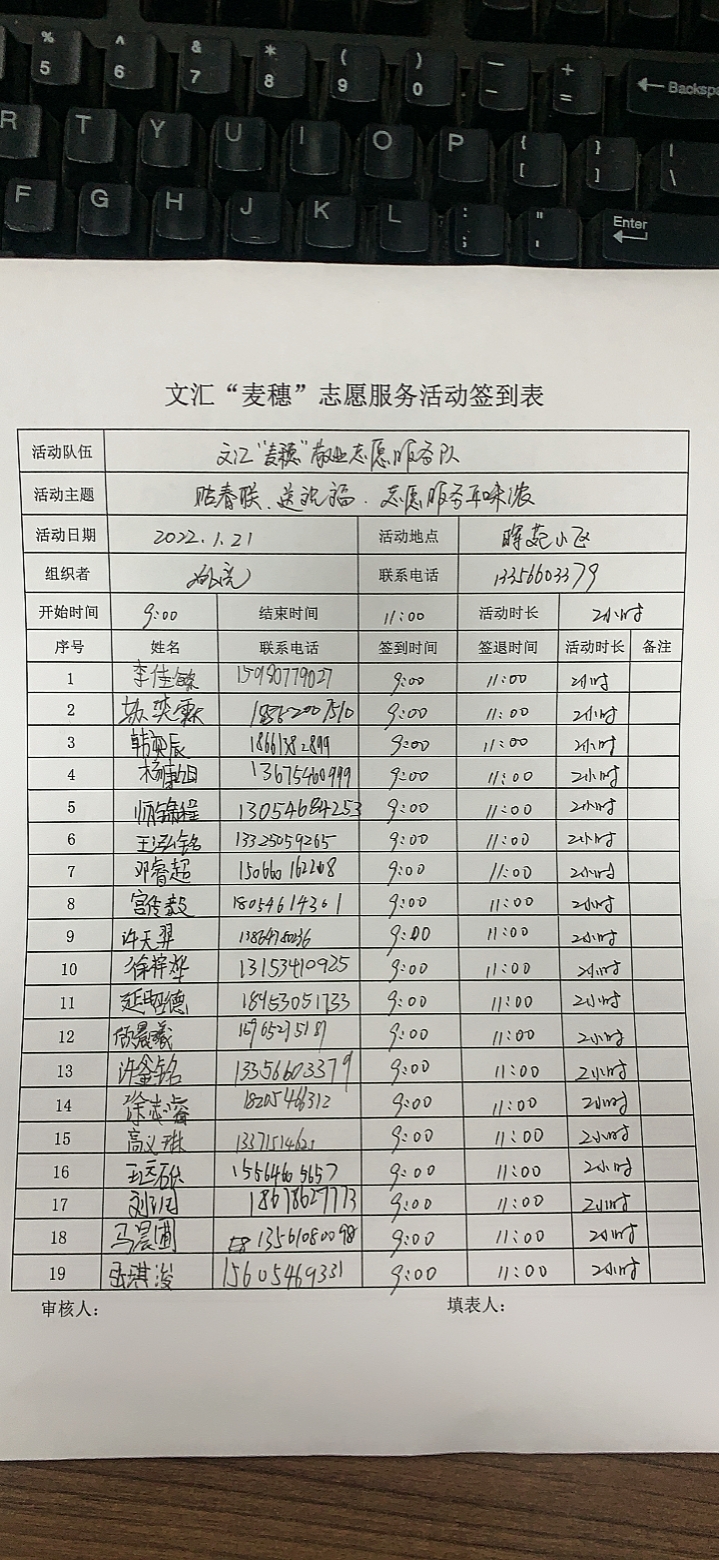 % ^ & * ( ) — +
5 6 7 8 9 0 - = ← Backspa
R T Y U I O P { } |
[ ] \
F G H J K L : " Enter
; '
文汇“麦穗”志愿服务活动签到表
活动队伍 文汇“麦穗”敬业志愿服务队
活动主题 贴春联、送祝福.志愿服务年味浓
活动日期 2022.1.21 活动地点 晖苑小区
组织者 联系电话 13356603379
开始时间 9:00 结束时间 11:00 活动时长 2小时
序号 姓名 联系电话 签到时间 签退时间 活动时长 备注
1 李佳 15980779027 9:00 11:00 2小时
2 苏奕霖 18562007510 9:00 11:00 2小时
3 韩奕辰 9:00 11:00 2小时
4 13675460999 9:00 11:00 2小时
5 师锦程 13054684253 9:00 11:00 2小时
6 王泓铭 13325059265 9:00 11:00 2小时
7 邓睿超 150660162268 9:00 11:00 2小时
8 宫传毅 18054614301 9:00 11:00 2小时
9 许天羿 9:00 11:00 2小时
10 徐梓烨 13153410925 9:00 11:00 2小时
11 延昭德 18453051733 9:00 11:00 2小时
12 晨曦 9:00 11:00 2小时
13 许釜铭 13356603379 9:00 11:00 2小时
14 徐志 9:00 11:00 2小时
15 高义琳 9:00 11:00 2小时
16 15564605657 9:00 11:00 2小时
17 刘 18678627773 9:00 11:00 2小时
18 马晨圃 13561080098 9:00 11:00 2小时
19 岳淇浚 15605469331 9:00 11:00 2小时
审核人： 填表人：